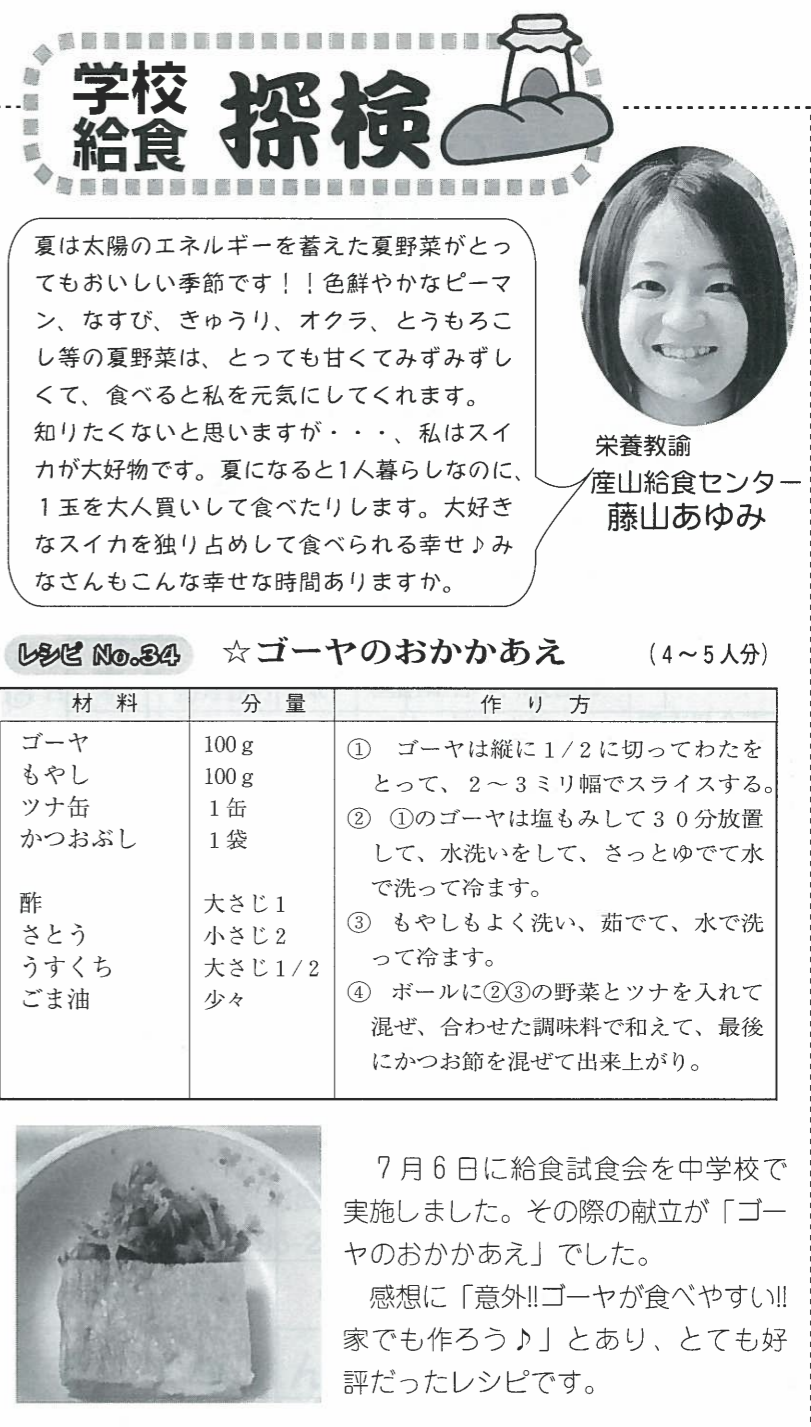 学校
給食
探検
夏は太陽のエネルギーを蓄えた夏野菜がとっ
てもおいしい季節です！！色鮮やかなピーマ
ン、なすび、きゅうり、オクラ、とうもろこ
し等の夏野菜は、とっても甘くてみずみずし
くて、食べると私を元気にしてくれます。
知りたくないと思いますが・・・、私はスイ
カが大好物です。夏になると1人暮らしなのに、
１玉を大人買いして食べたりします。大好き
なスイカを独り占めして食べられる幸せ♪み
なさんもこんな幸せな時間ありますか。
栄養教諭
産山給食センター
藤山あゆみ
レシピ No.34 ☆ゴーヤのおかかあえ （4～5人分）
材 料 分 量 作 り 方
ゴーヤ 100g
もやし 100g
ツナ缶 1缶
かつおぶし 1袋
酢 大さじ1
さとう 小さじ2
うすくち 大さじ1/2
ごま油 少々
① ゴーヤは縦に1/2に切ってわたを
とって、2～3ミリ幅でスライスする。
② ①のゴーヤは塩もみして３０分放置
して、水洗いをして、さっとゆでて水
で洗って冷ます。
③ もやしもよく洗い、茹でて、水で洗
って冷ます。
④ ボールに②③の野菜とツナを入れて
混ぜ、合わせた調味料で和えて、最後
にかつお節を混ぜて出来上がり。
７月６日に給食試食会を中学校で
実施しました。その際の献立が「ゴー
ヤのおかかあえ」でした。
感想に「意外!!ゴーヤが食べやすい!!
家でも作ろう♪」とあり、とても好
評だったレシピです。